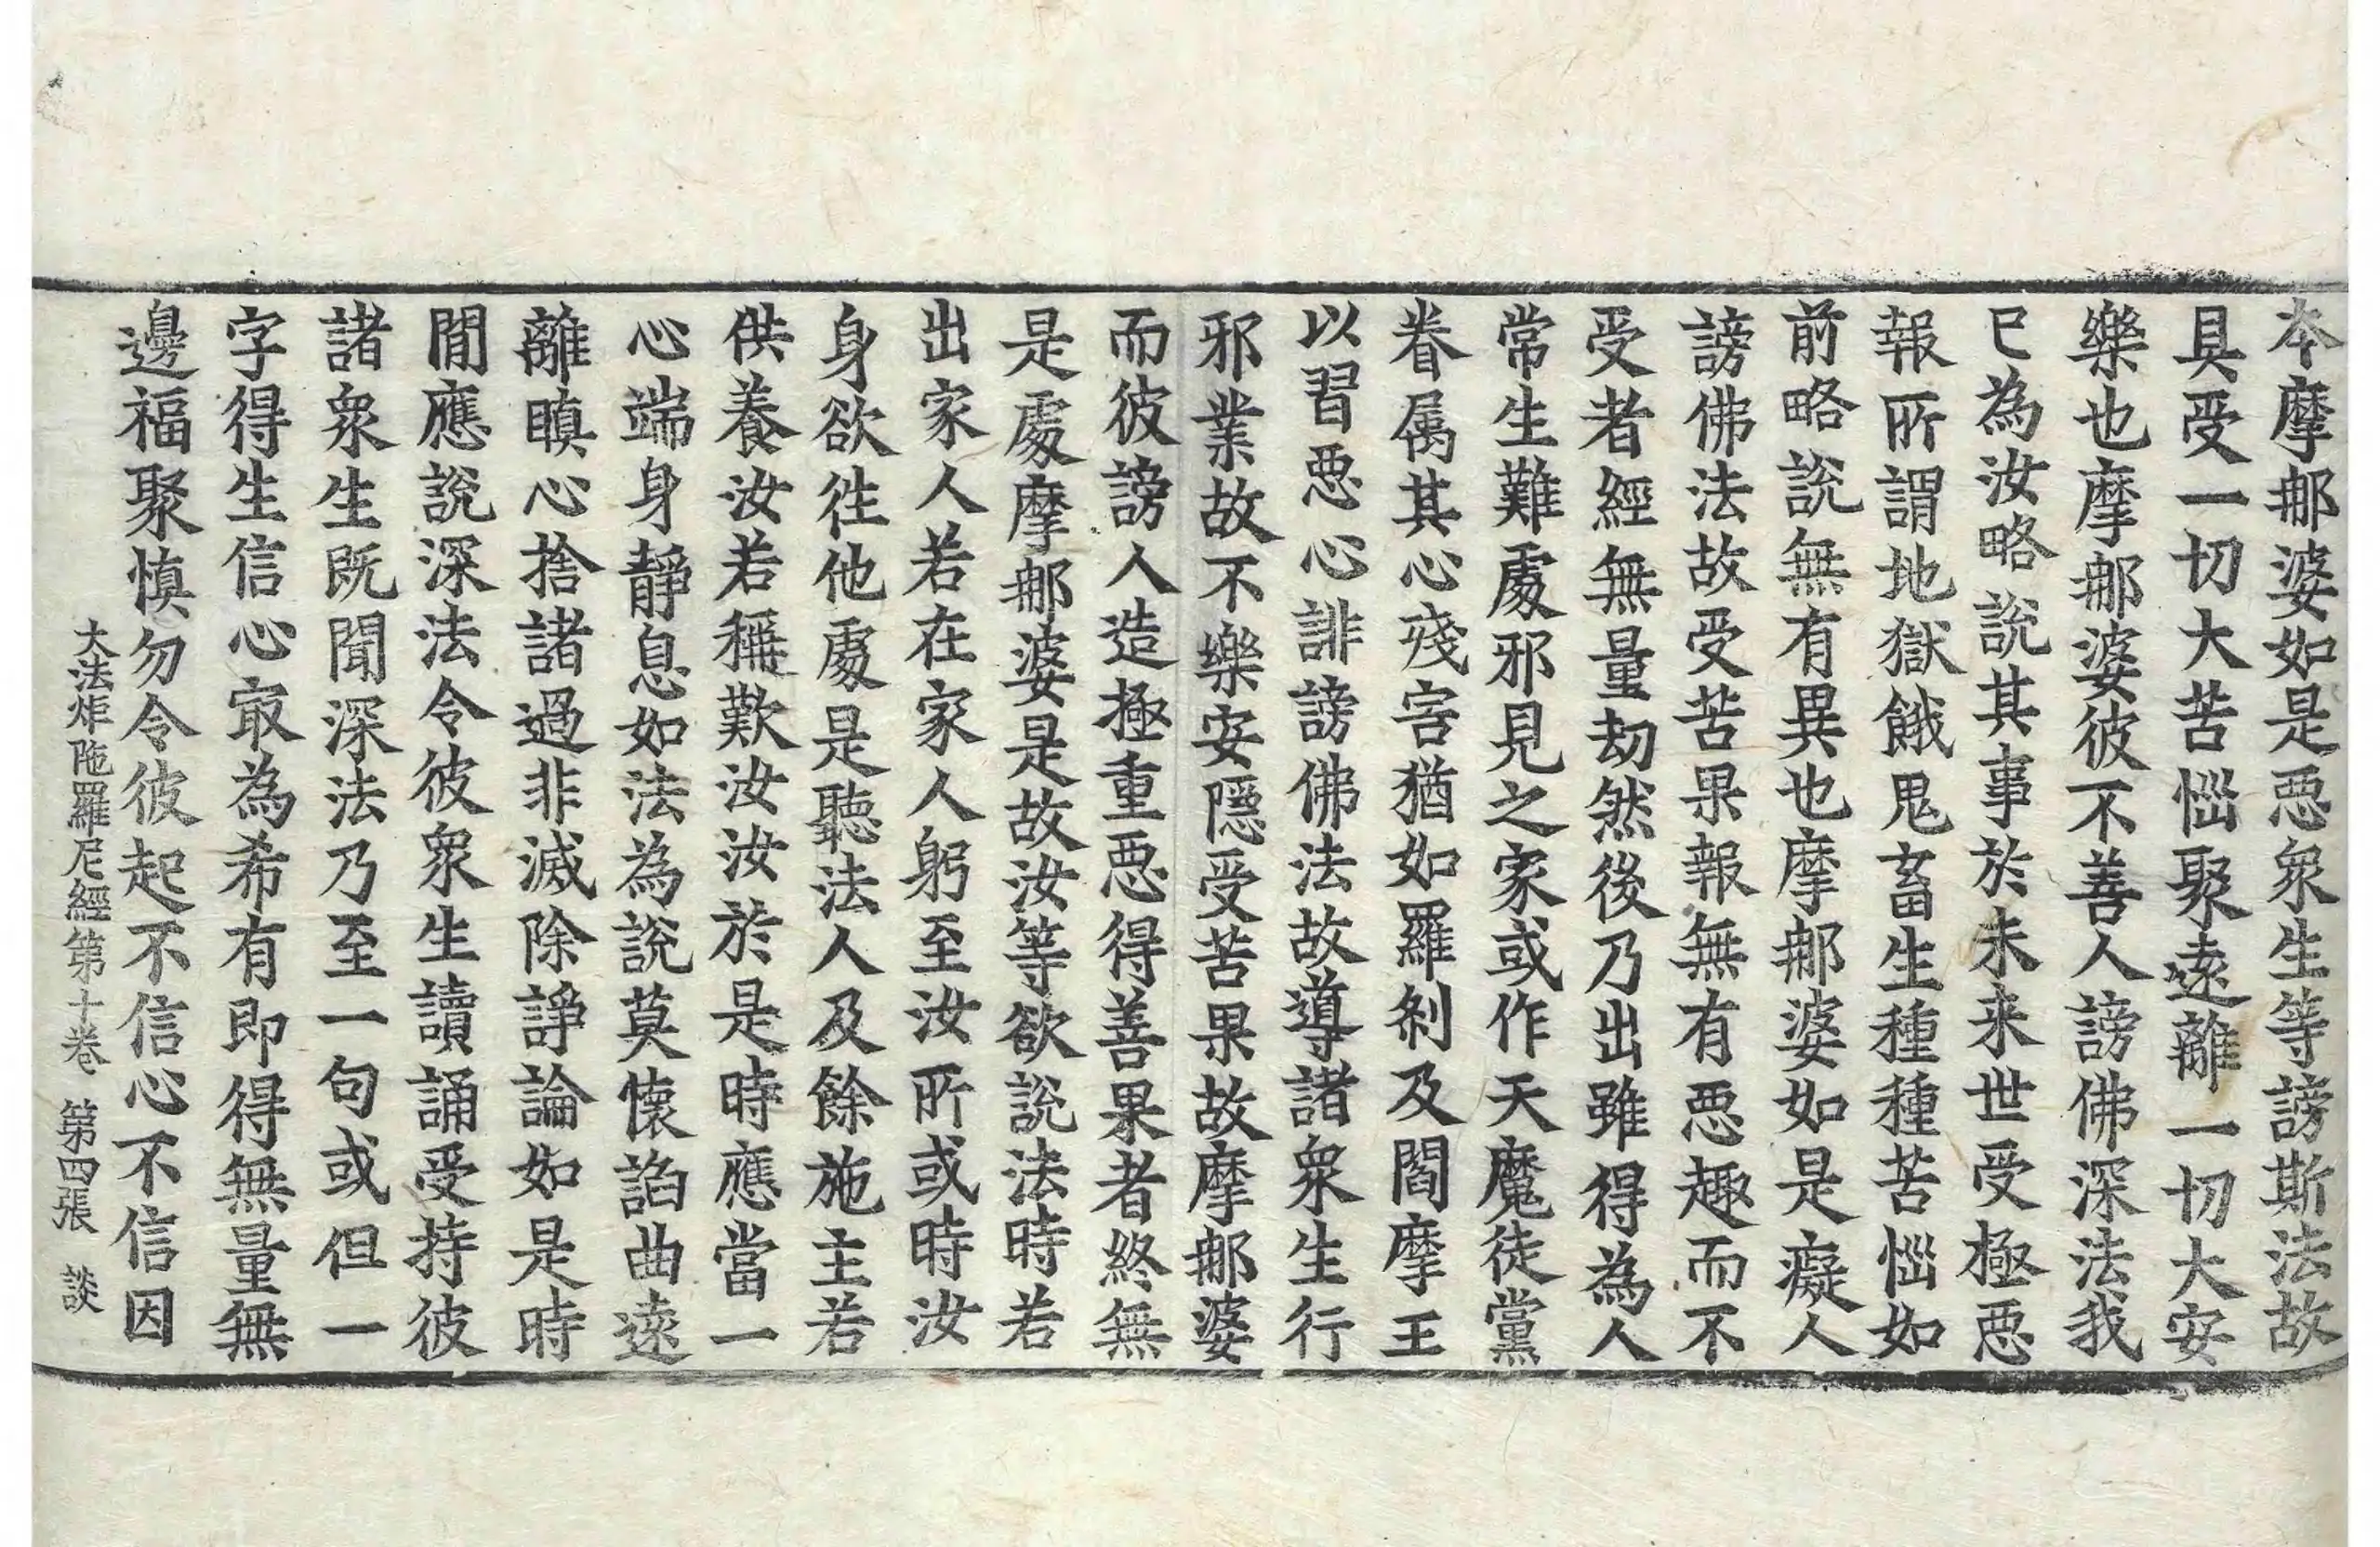 本摩那婆如是惡衆生等謗斯法故
具受一切大苦惱聚遠離一切大安
樂也摩那婆彼不善人謗佛深法我
已為汝略說其事於未来世受極惡
報所謂地獄餓鬼畜生種種苦惱如
前略說無有異也摩那婆如是癡人
謗佛法故受苦果報無有惡趣而不
受者經無量劫然後乃出雖得為人
常生難處邪見之家或作天魔徒黨
眷属其心殘害猶如羅刹及閻摩王
以習惡心誹謗佛法故導諸衆生行
邪業故不樂安隱受苦果故摩那婆
而彼謗人造極重惡得善果者終無
是處摩那婆是故汝等欲說法時若
出家人若在家人躬至汝所或時汝
身欲往他處是聽法人及餘施主若
供養汝若稱歎汝汝於是時應當一
心端身靜息如法為說莫懷諂曲遠
離瞋心捨諸過非滅除諍論如是時
閒應說深法令彼衆生讀誦受持彼
諸衆生既聞深法乃至一句或但一
字得生信心㝡為希有即得無量無
邊福聚慎勿令彼起不信心不信因
大法炬陁羅尼經第十卷 第四張 談